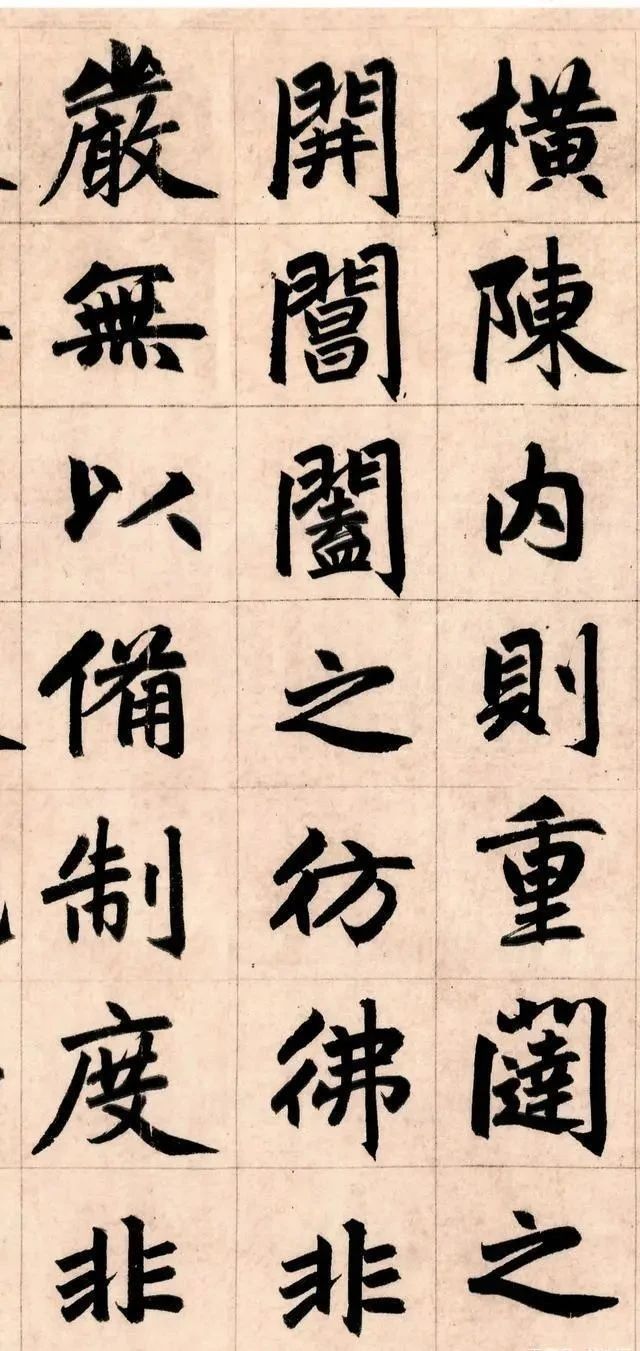 橫陳内則重闥之
開閶闔之彷彿非
嚴無以備制度非